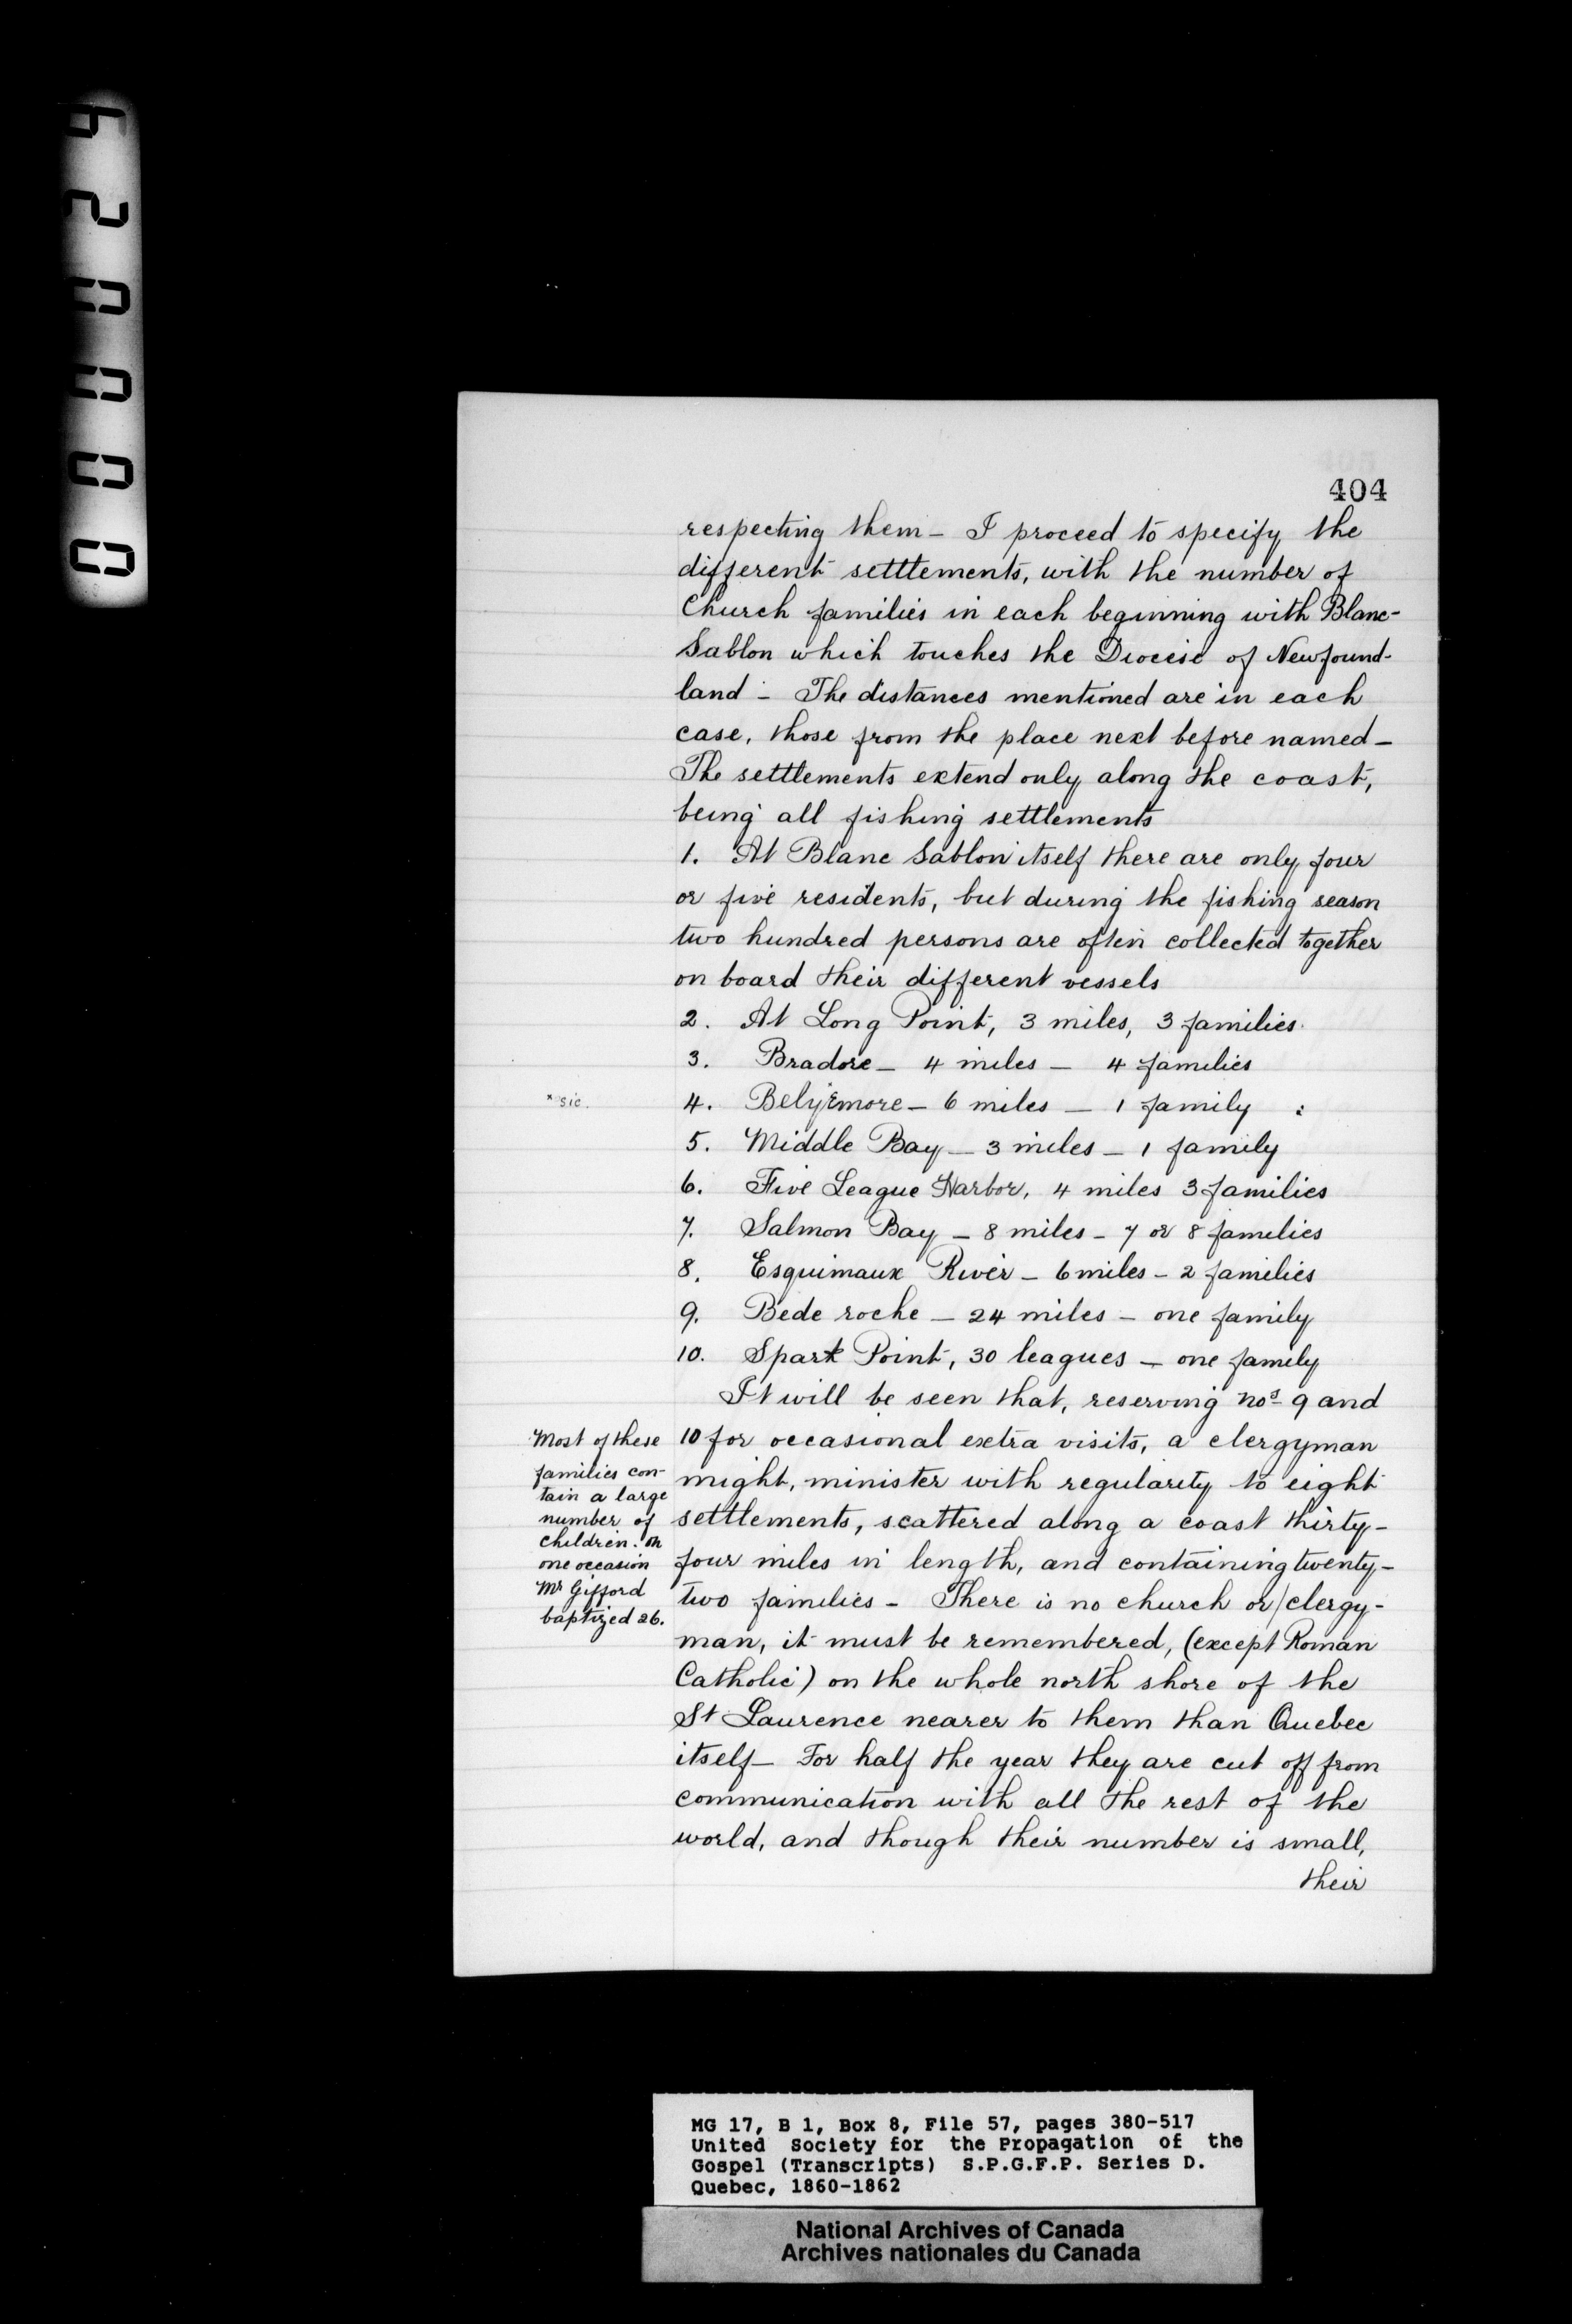 404
respecting them - I proceed to specify the
different settlements, with the number of
Church families in each beginning with Blanc-
Sablon which touches the Diocese of Newfound-
land - The distances mentioned are in each
case, those from the place next before named -
The settlements extend only along the coast,
being all fishing settlements
1. At Blanc Sablon itself there are only four
or five residents, but during the fishing season
two hundred persons are often collected together
on board their different vessels
2. At Long Point, 3 miles, 3 families.
3. Bradore - 4 miles - 4 families
x sic.
4. - 6 miles - 1 family :
5. Middle Bay - 3 miles - 1 family
6. Five League Harbor, 4 miles 3 families
7. Salmon Bay - 8 miles - 7 or 8 families
8. Esquimaux River - 6 miles - 2 families
9. Bede roche - 24 miles - one family
10. Spark Point, 30 leagues - one family
It will be seen that, reserving nos 9 and
10 for occasional extra visits, a clergyman
might, minister with regularity to eight
settlements, scattered along a coast thirty-
four miles in length, and containing twenty-
two families - There is no church or clergy-
man, it must be remembered, (except Roman
Catholic) on the whole north shore of the
St Laurence nearer to them than Quebec
itself - For half the year they are cut off from
communication with all the rest of the
world, and though their number is small,
their
Most of these
families con-
tain a large
number of
children. On
one occasion
Mr Gifford
baptized 26.
MG 17, B 1, Box 8, File 57, pages 380-517
United Society for the Propagation of the
Gospel (Transcripts) S.P.G.F.P. Series D.
Quebec, 1860-1862
National Archives of Canada
Archives nationales du Canada